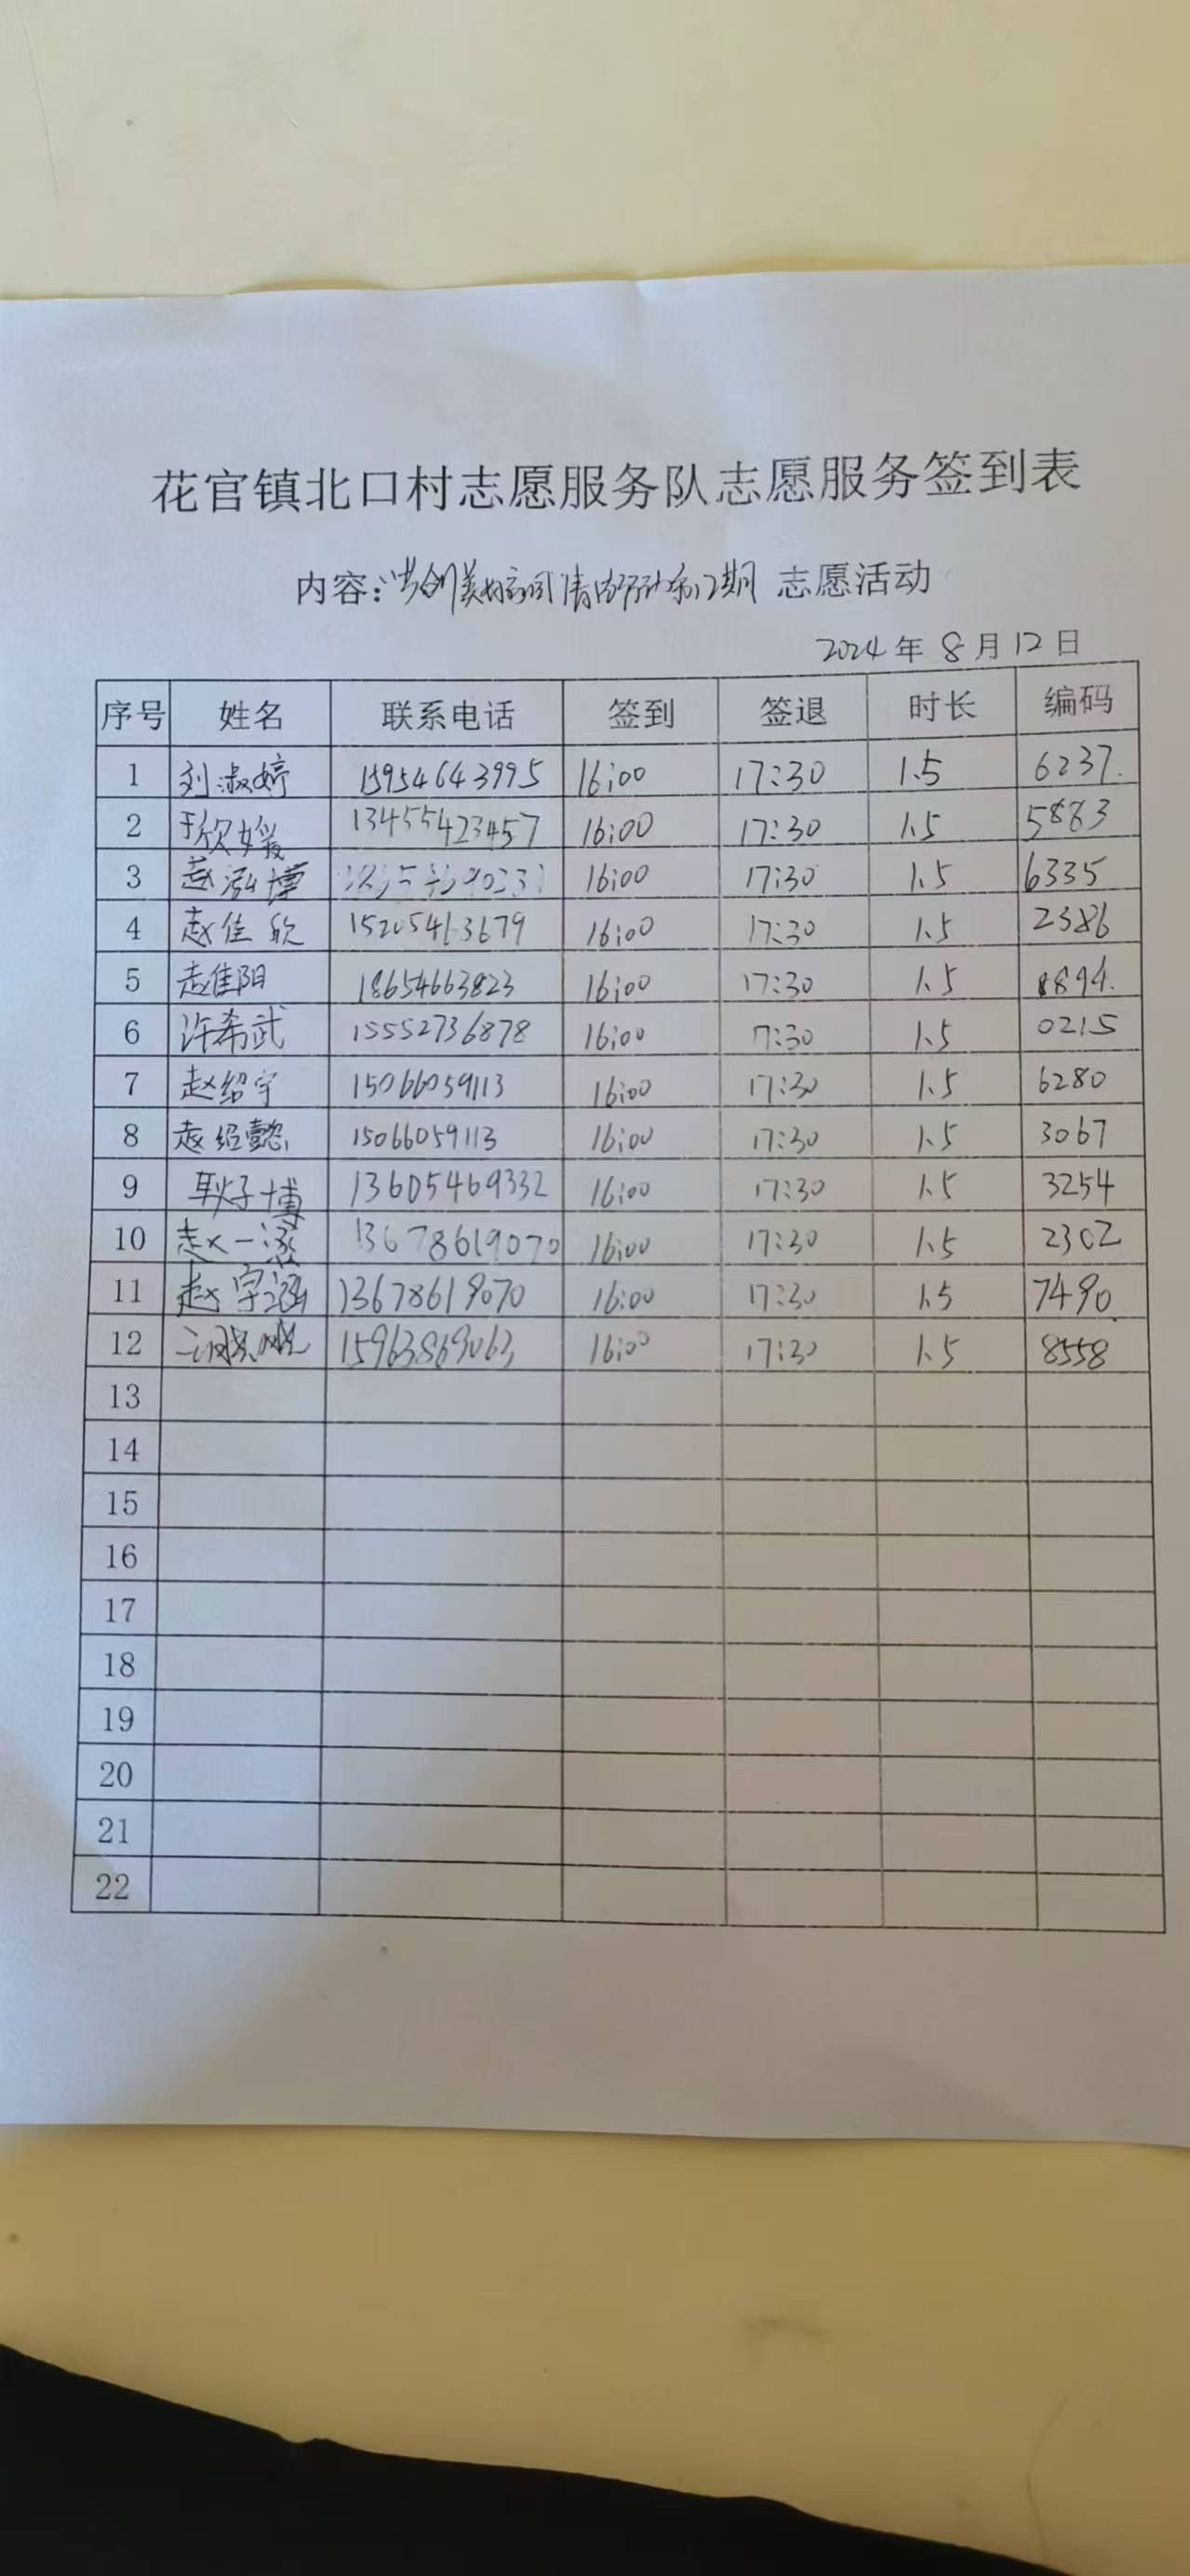 花官镇北口村志愿服务队志愿服务签到表
内容:"共创美好家园清洁行动第12期 志愿活动
2024年8月12日
序号 姓名 联系电话 签到 签退 时长 编码
1 刘淑婷 15954643995 16:00 17:30 1.5 6237
2 于欣媛 13455423457 16:00 17:30 1.5 5883
3 赵泓博 16:00 17:30 1.5 6335
4 赵佳欣 15205463679 16:00 17:30 1.5 2386
5 赵佳阳 18654663823 16:00 17:30 1.5 8894
6 许希武 15552736878 16:00 17:30 1.5 0215
7 赵绍宇 15066059113 16:00 17:30 1.5 6280
8 赵经懿 15066059113 16:00 17:30 1.5 3067
9 耿子博 13605469332 16:00 17:30 1.5 3254
10 赵一 13678619070 16:00 17:30 1.5 2302
11 赵宇涵 13678619070 16:00 17:30 1.5 7490
12 15963869063 16:00 17:30 1.5 8558
13
14
15
16
17
18
19
20
21
22